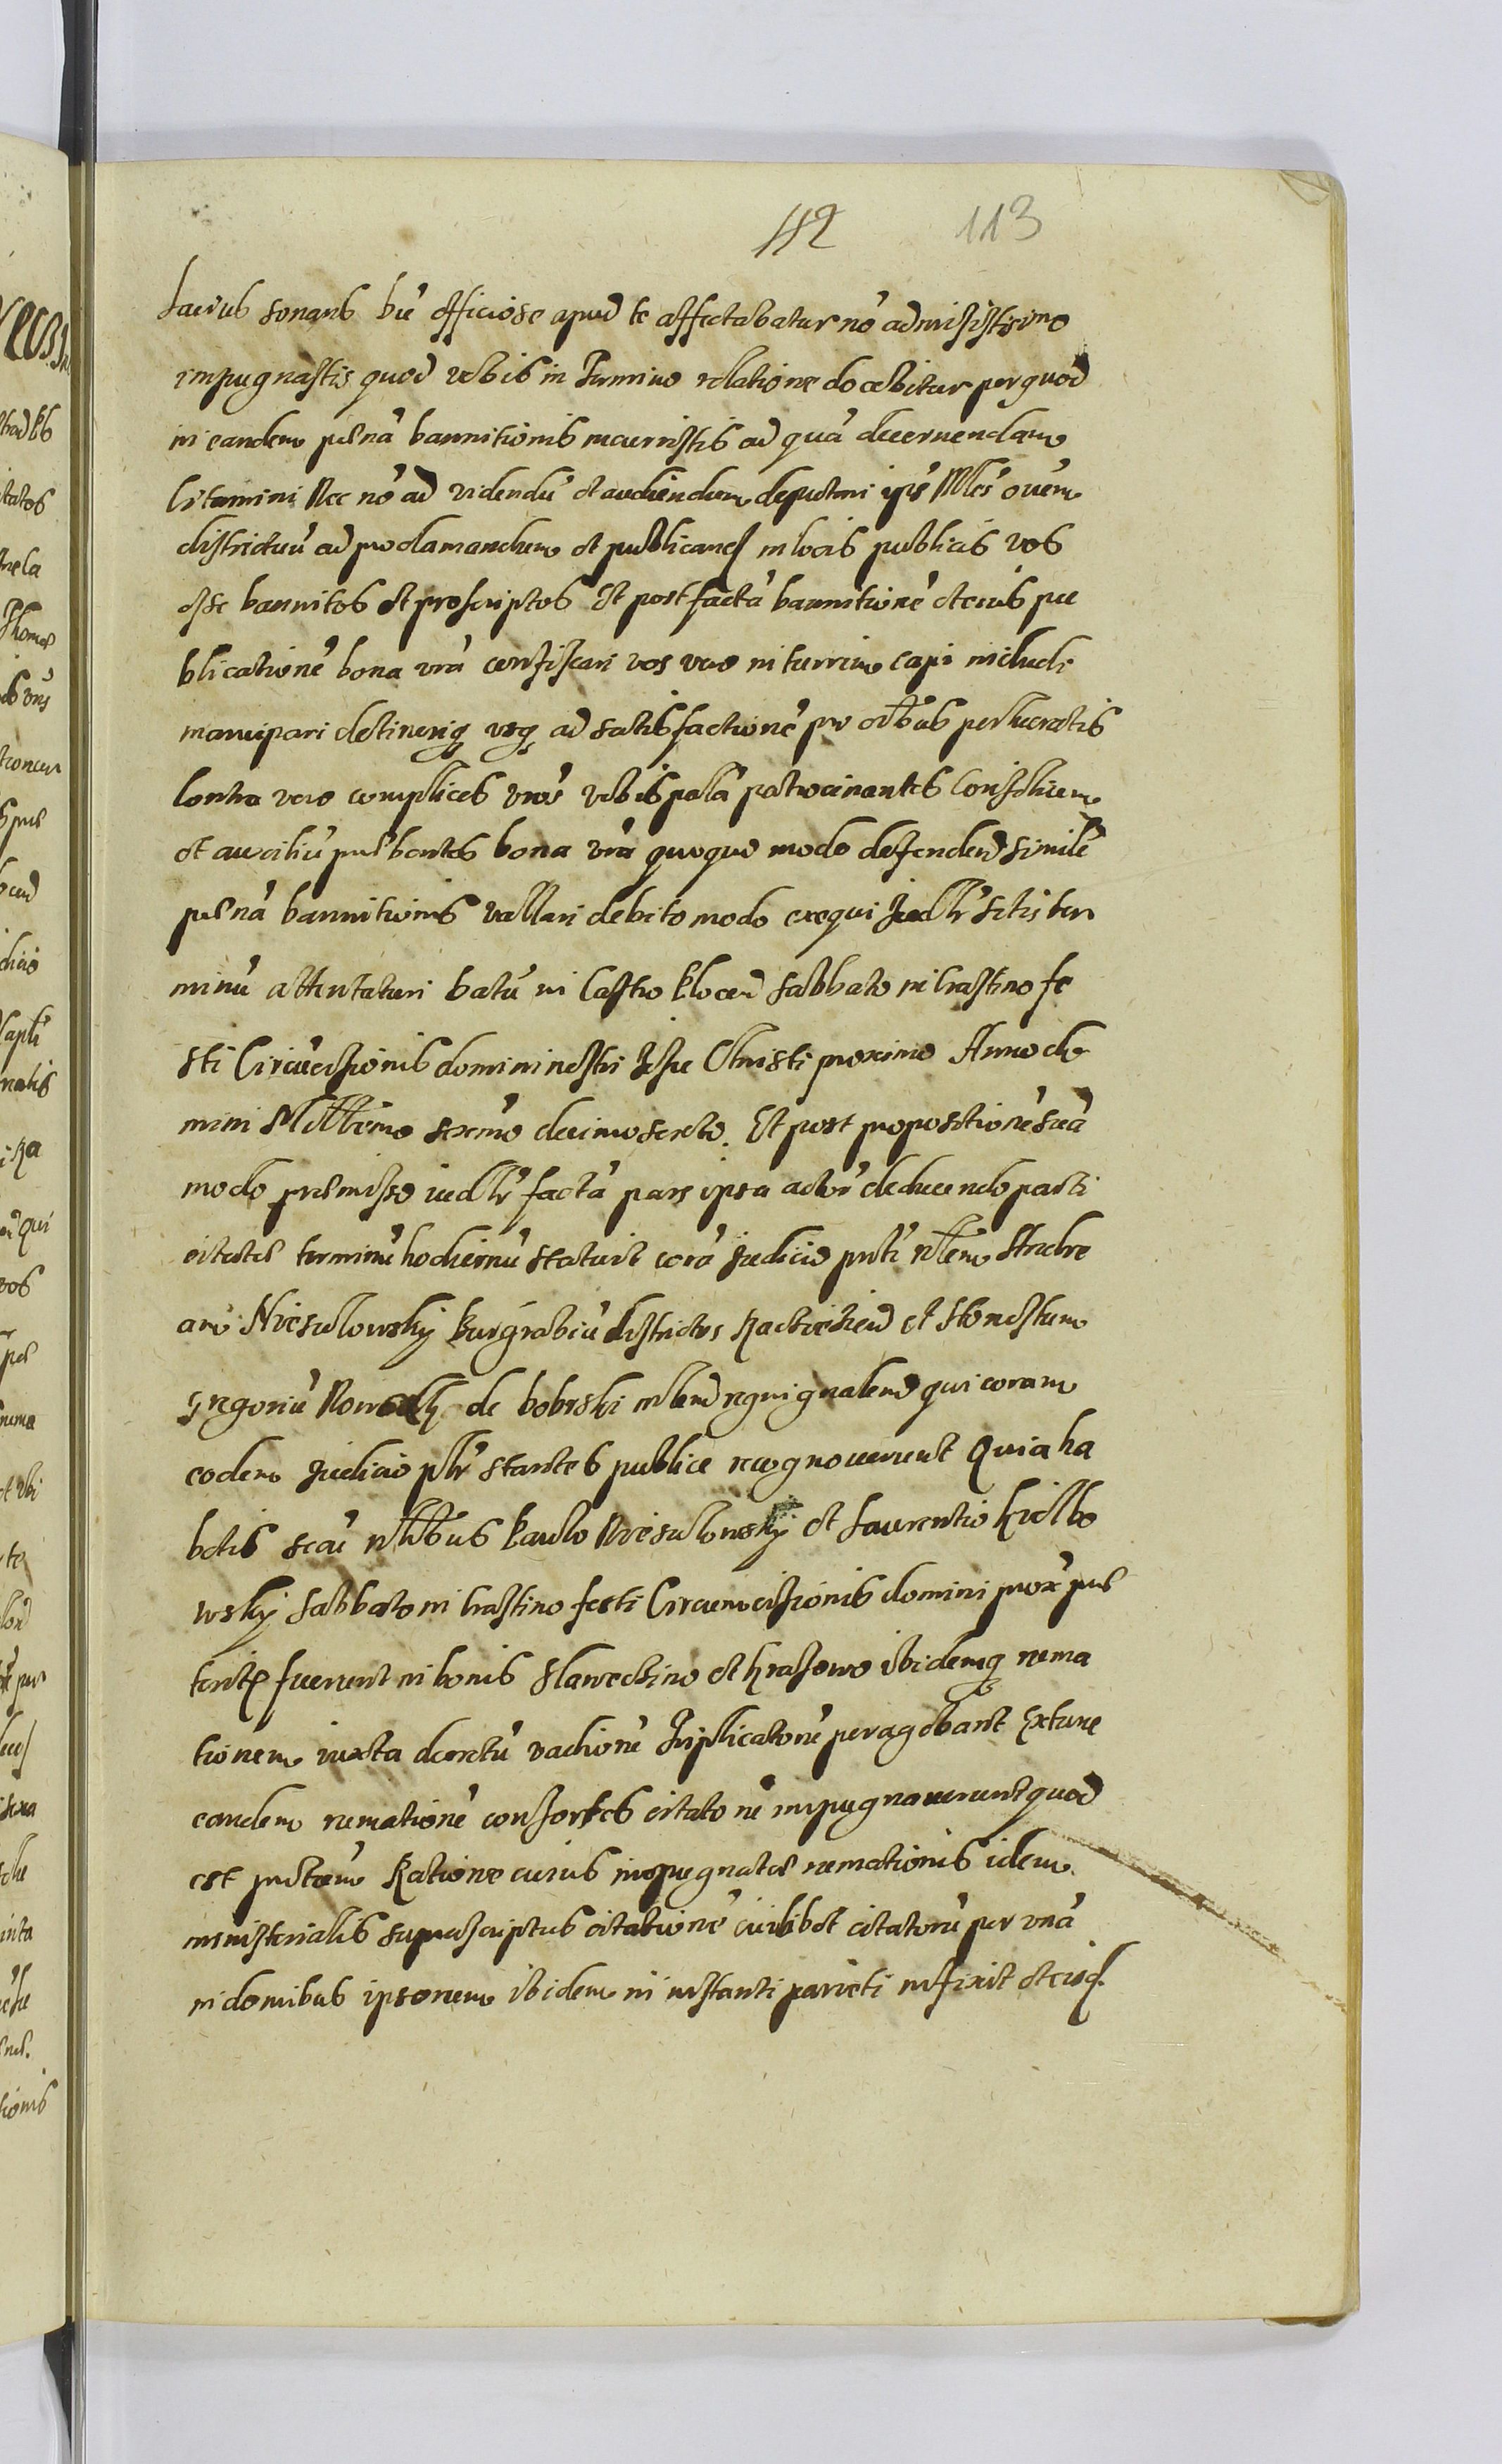 112 113
sonans officiose apud te affectabatur nõ admisistis imo
impugnastis quod vobis in termino relatione docebitur per quod
in eandem pœnã bannitionis incurristis ad quã decernendam
Citamini Nec nõ ad videndũ et audiendum deputari
districtuũ ad proclamandum et publicand in locis publicis vos
esse bannitos et proscriptos Et post factã bannitionẽ et eius pu
blicationẽ bona vrã confiscari vos vero in turrim capi includi
mancipari detineriq usq ad satisfactionẽ pro oĩbus perlucratis
Contra vero complices vros vobis palã patrocinantes Consilium
et auxiliũ præbentes bona vrã quoquo modo defenden similẽ
pœnã bannitionis vallari debito modo exequi Judlr sitis ter
minũ attentaturi ratũ in Castro Plocen Sabbato in Crastino fe
sti Circũcisionis domini nostri Jesu Christi proximo Anno do
mini Millmo sexcmo decimo sexto. Et post propositionẽ suã
modo præmisso iudlr factã pars ipsa actorˀ deducendo parti
citatæ terminũ hodiernũ statuit corã Judicio pnti nblem Andre
am Niesulowsky Burgrabiũ districtus Raciazien et Honestum
Gregoriũ Nowak de Bobrski mlem regni gnalem qui coram
eodem Judicio plr stantes publice recognoverunt Quia ha
bitis secũ nblibus Paulo Niesulowsky et Laurentio Kielbo
wsky Sabbato in Crastino festi Circumcisionis domini prox præ
terito fuerunt in bonis Slawecino et Krajewo ibidemq rema
tionem iuxta decretũ vadiorũ Triplicatorũ peragebant Ex tunc
eandem rumationẽ consortes citatorũ impugnaverunt quod
est pnitam Ratione cuius impugnatæ remationis idem
ministerialis suprascriptus citationẽ cuilibet citatorũ per unã
in domibus ipsorum ibidem in instanti parieti infixit et eisd